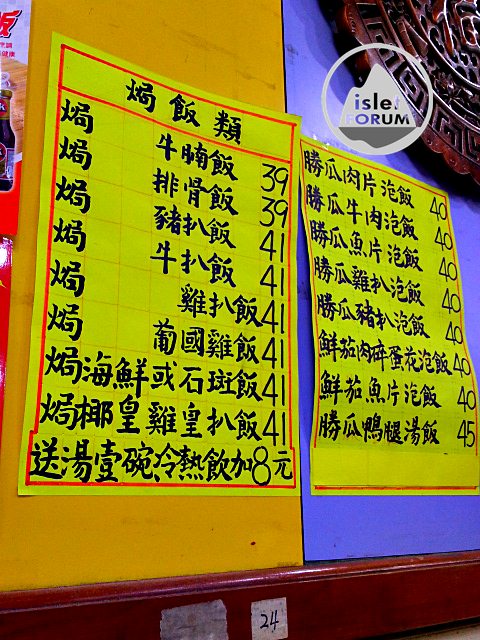 islet
FORUM
焗飯類
焗牛腩飯 39
焗排骨飯 39
焗豬扒飯 41
焗牛扒飯 41
焗雞扒飯 41
焗葡國雞飯 41
焗海鮮或石斑飯 41
焗椰皇雞皇扒飯 41
送湯壹碗冷熱飲加8元
勝瓜肉片泡飯 40
勝瓜牛肉泡飯 40
勝瓜魚片泡飯 40
勝瓜雞扒泡飯 40
勝瓜豬扒泡飯 40
鮮茄肉碎蛋花泡飯 40
鮮茄魚片泡飯 40
勝瓜鴨腿湯飯 45
24